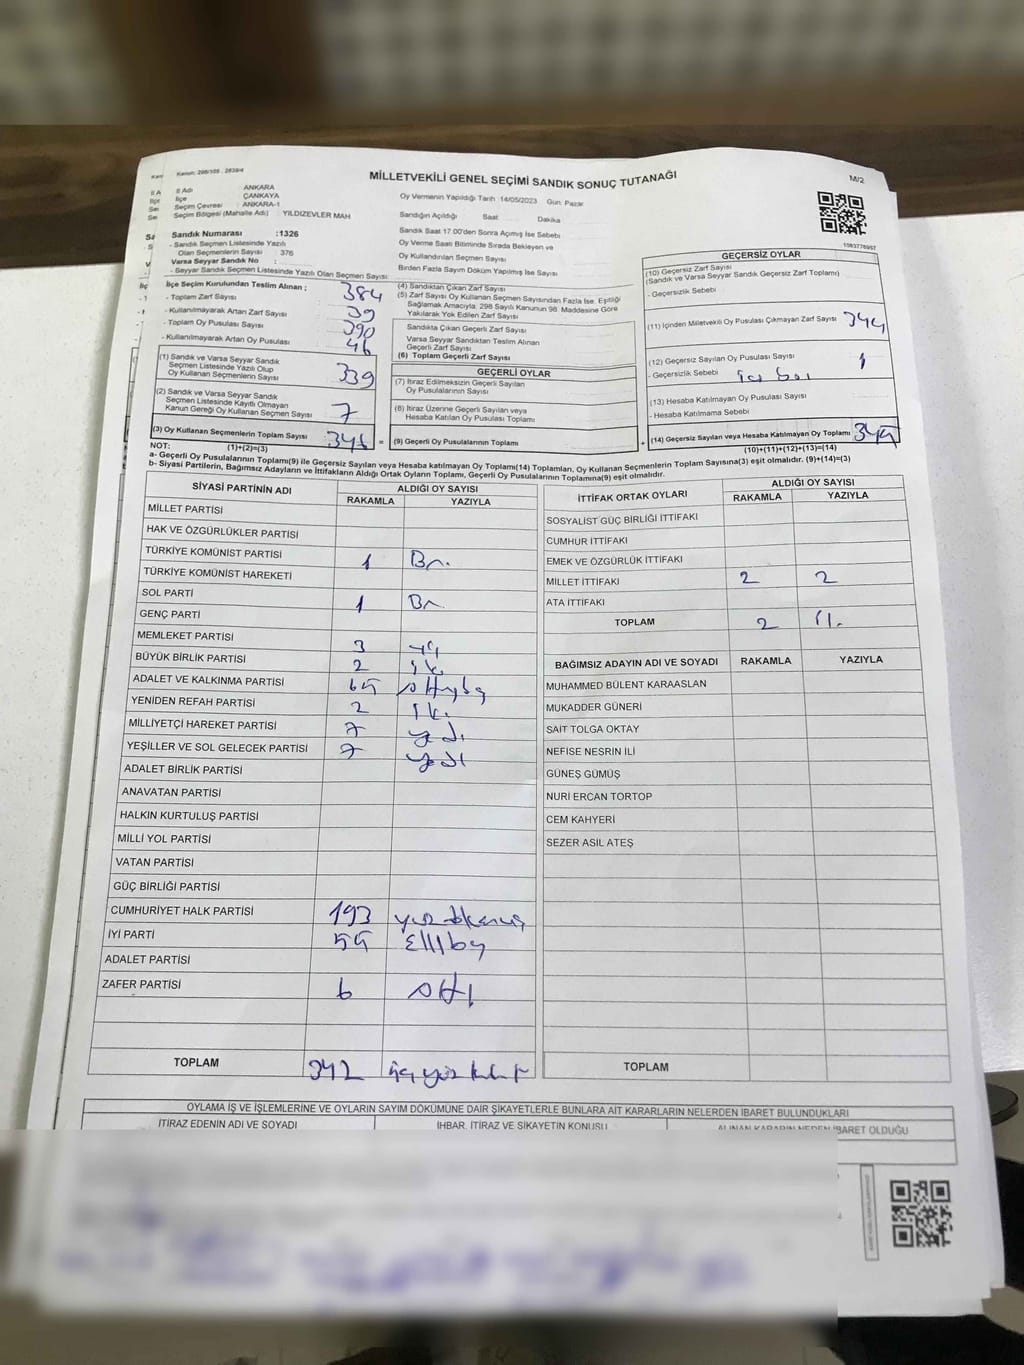 MİLLETVEKİLİ GENEL SEÇİMİ SANDIK SONUÇ TUTANAĞI
M/2
İl Adı ANKARA
İlçe ÇANKAYA
Seçim Çevresi : ANKARA-1
Seçim Bölgesi (Mahalle Adı) : YILDIZEVLER MAH
Oy Vermenin Yapıldığı Tarih 14/05/2023 Gün: Pazar
Sandığın Açıldığı Saat Dakika
Sandık Saat 17.00'den Sonra Açılmış İse Sebebi
Oy Verme Saati Bitiminde Sırada Bekleyen ve
Oy Kullandırılan Seçmen Sayısı
Birden Fazla Sayım Döküm Yapılmış İse Sayısı
Sandık Numarası :1326
- Sandık Seçmen Listesinde Yazılı
Olan Seçmenlerin Sayısı 376
Varsa Seyyar Sandık No :
- Seyyar Sandık Seçmen Listesinde Yazılı Olan Seçmen Sayısı:
İlçe Seçim Kurulundan Teslim Alınan ;
- Toplam Zarf Sayısı 384
- Kullanılmayarak Artan Zarf Sayısı 39
- Toplam Oy Pusulası Sayısı 390
- Kullanılmayarak Artan Oy Pusulası 46
(1) Sandık ve Varsa Seyyar Sandık
Seçmen Listesinde Yazılı Olup
Oy Kullanan Seçmenlerin Sayısı 339
(2) Sandık ve Varsa Seyyar Sandık
Seçmen Listesinde Kayıtlı Olmayan
Kanun Gereği Oy Kullanan Seçmen Sayısı 7
(3) Oy Kullanan Seçmenlerin Toplam Sayısı
(1)+(2)=(3)
(4) Sandıktan Çıkan Zarf Sayısı
(5) Zarf Sayısı Oy Kullanan Seçmen Sayısından Fazla İse, Eşitliği
Sağlamak Amacıyla; 298 Sayılı Kanunun 98. Maddesine Göre
Yakılarak Yok Edilen Zarf Sayısı
Sandıkta Çıkan Geçerli Zarf Sayısı
Varsa Seyyar Sandıktan Teslim Alınan
Geçerli Zarf Sayısı
(6) Toplam Geçerli Zarf Sayısı
GEÇERLİ OYLAR
(7) İtiraz Edilmeksizin Geçerli Sayılan
Oy Pusulalarının Sayısı
(8) İtiraz Üzerine Geçerli Sayılan veya
Hesaba Katılan Oy Pusulası Toplamı
= (9) Geçerli Oy Pusulalarının Toplamı +
1083776957
GEÇERSİZ OYLAR
(10) Geçersiz Zarf Sayısı
(Sandık ve Varsa Seyyar Sandık Geçersiz Zarf Toplamı)
- Geçersizlik Sebebi
(11) İçinden Milletvekili Oy Pusulası Çıkmayan Zarf Sayısı 344
(12) Geçersiz Sayılan Oy Pusulası Sayısı 1
- Geçersizlik Sebebi içi boş
(13) Hesaba Katılmayan Oy Pusulası Sayısı
- Hesaba Katılmama Sebebi
(14) Geçersiz Sayılan veya Hesaba Katılmayan Oy Toplamı 345
(10)+(11)+(12)+(13)=(14)
NOT:
a- Geçerli Oy Pusulalarının Toplamı(9) ile Geçersiz Sayılan veya Hesaba katılmayan Oy Toplamı(14) Toplamları, Oy Kullanan Seçmenlerin Toplam Sayısına(3) eşit olmalıdır. (9)+(14)=(3)
b- Siyasi Partilerin, Bağımsız Adayların ve İttifakların Aldığı Ortak Oyların Toplamı, Geçerli Oy Pusulalarının Toplamına(9) eşit olmalıdır.
SİYASİ PARTİNİN ADI ALDIĞI OY SAYISI
RAKAMLA YAZIYLA
MİLLET PARTİSİ
HAK VE ÖZGÜRLÜKLER PARTİSİ
TÜRKİYE KOMÜNİST PARTİSİ 1 Bir.
TÜRKİYE KOMÜNİST HAREKETİ
SOL PARTİ 1 Bir
GENÇ PARTİ
MEMLEKET PARTİSİ 3 üç
BÜYÜK BİRLİK PARTİSİ 2 iki
ADALET VE KALKINMA PARTİSİ 65 altmışbeş
YENİDEN REFAH PARTİSİ 2 iki
MİLLİYETÇİ HAREKET PARTİSİ 7 yedi
YEŞİLLER VE SOL GELECEK PARTİSİ 7 yedi
ADALET BİRLİK PARTİSİ
ANAVATAN PARTİSİ
HALKIN KURTULUŞ PARTİSİ
MİLLİ YOL PARTİSİ
VATAN PARTİSİ
GÜÇ BİRLİĞİ PARTİSİ
CUMHURİYET HALK PARTİSİ 193 yüz
İYİ PARTİ 55 Ellibeş
ADALET PARTİSİ
ZAFER PARTİSİ 6 altı
TOPLAM 342 üç yüz kırk
İTTİFAK ORTAK OYLARI ALDIĞI OY SAYISI
RAKAMLA YAZIYLA
SOSYALİST GÜÇ BİRLİĞİ İTTİFAKI
CUMHUR İTTİFAKI
EMEK VE ÖZGÜRLÜK İTTİFAKI
MİLLET İTTİFAKI 2 2
ATA İTTİFAKI
TOPLAM 2
BAĞIMSIZ ADAYIN ADI VE SOYADI RAKAMLA YAZIYLA
MUHAMMED BÜLENT KARAASLAN
MUKADDER GÜNERİ
SAİT TOLGA OKTAY
NEFİSE NESRİN İLİ
GÜNEŞ GÜMÜŞ
NURİ ERCAN TORTOP
CEM KAHYERİ
SEZER ASIL ATEŞ
TOPLAM
OYLAMA İŞ VE İŞLEMLERİNE VE OYLARIN SAYIM DÖKÜMÜNE DAİR ŞİKAYETLERLE BUNLARA AİT KARARLARIN NELERDEN İBARET BULUNDUKLARI
İTİRAZ EDENİN ADI VE SOYADI İHBAR, İTİRAZ VE ŞİKAYETİN KONUSU ALINAN KARARIN NEDEN İBARET OLDUĞU